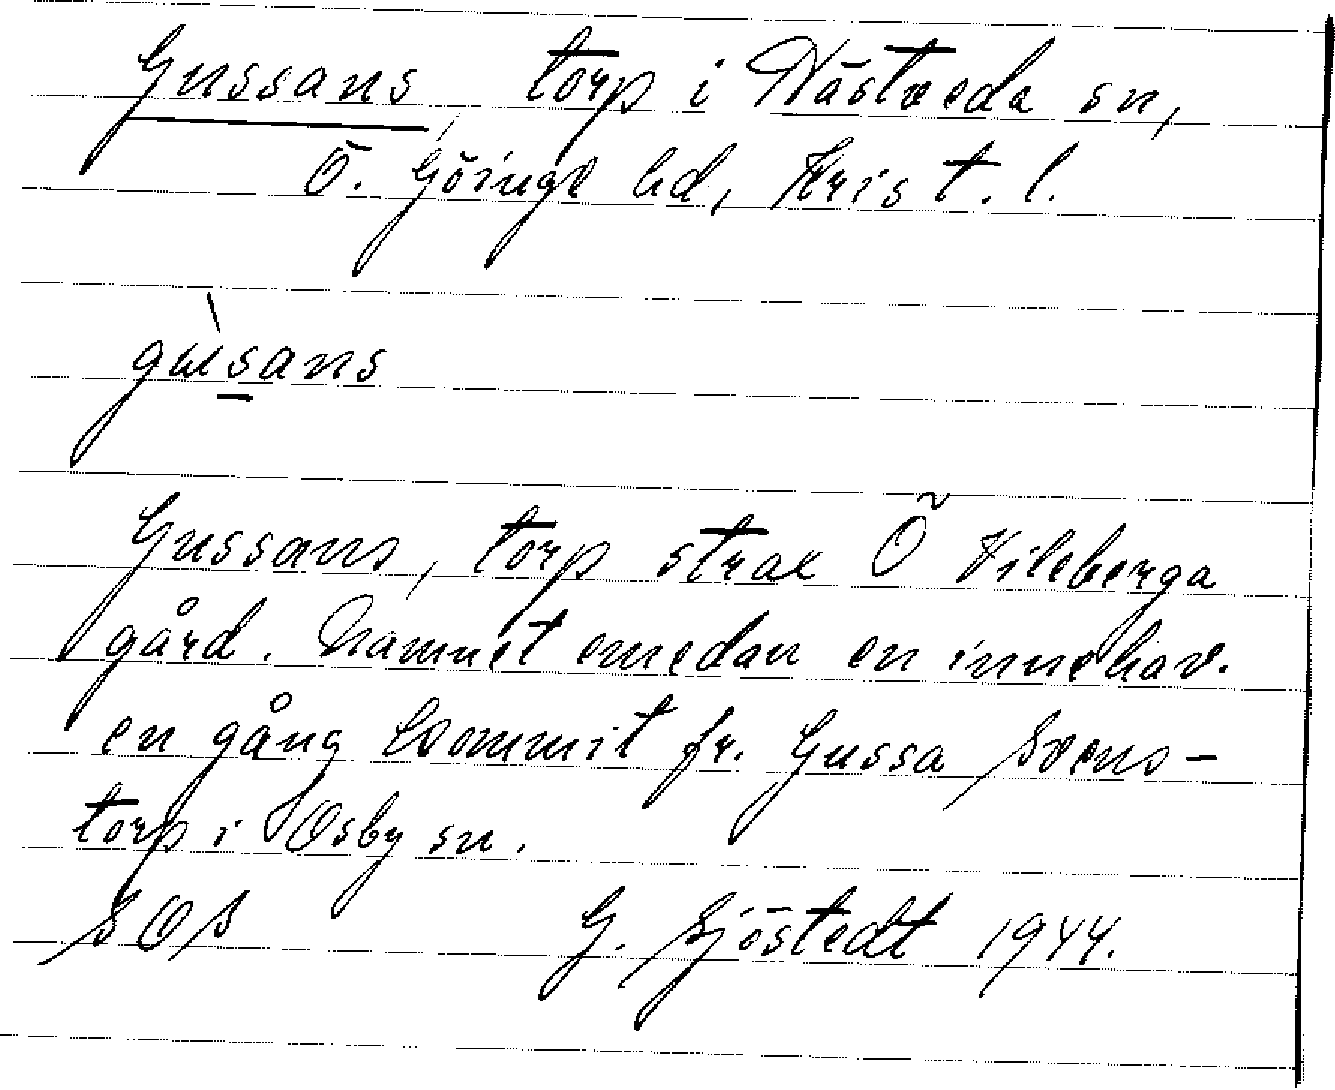 Gussans, torp i Näsveda sn,
Ö. Göinge hd, Krist. l.
gusans
Gussans, torp strax Ö Kileberga
gård. Namnet emedan en innehav.
en gång kommit fr. Gussa Svens-
torp i Osby sn.
SOS G. Sjöstedt 1944.